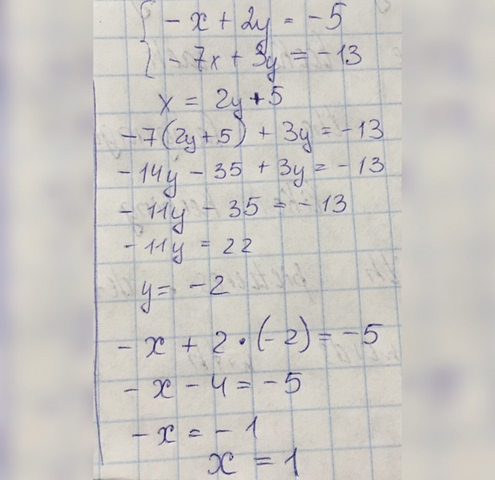 { -x + 2y = -5
-7x + 3y = -13
x = 2y + 5
-7(2y+5) + 3y = -13
-14y - 35 + 3y = -13
-11y - 35 = -13
-11y = 22
y = -2
-x + 2 • (-2) = -5
-x - 4 = -5
-x = -1
x = 1